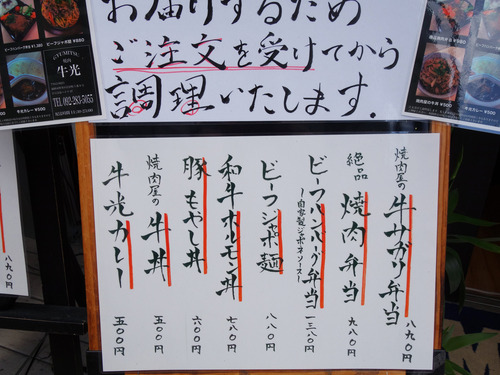 お届けするため
ご注文を受けてから
調理いたします.
焼肉屋の牛サガリ弁当 八九〇円
絶品焼肉弁当 九八〇円
ビーフハンバーグ弁当 一三八〇円
ー自家製ジャポネソースー
ビーフジャポ麺 八八〇円
和牛ホルモン丼 七八〇円
豚もやし丼 六〇〇円
焼肉屋の牛丼 五〇〇円
牛光カレー 五〇〇円
八九〇円
ビーフジャポ麺 ¥880
GYUMITSU
牛光
TEL 092-283-5055
牛光カレー ¥500